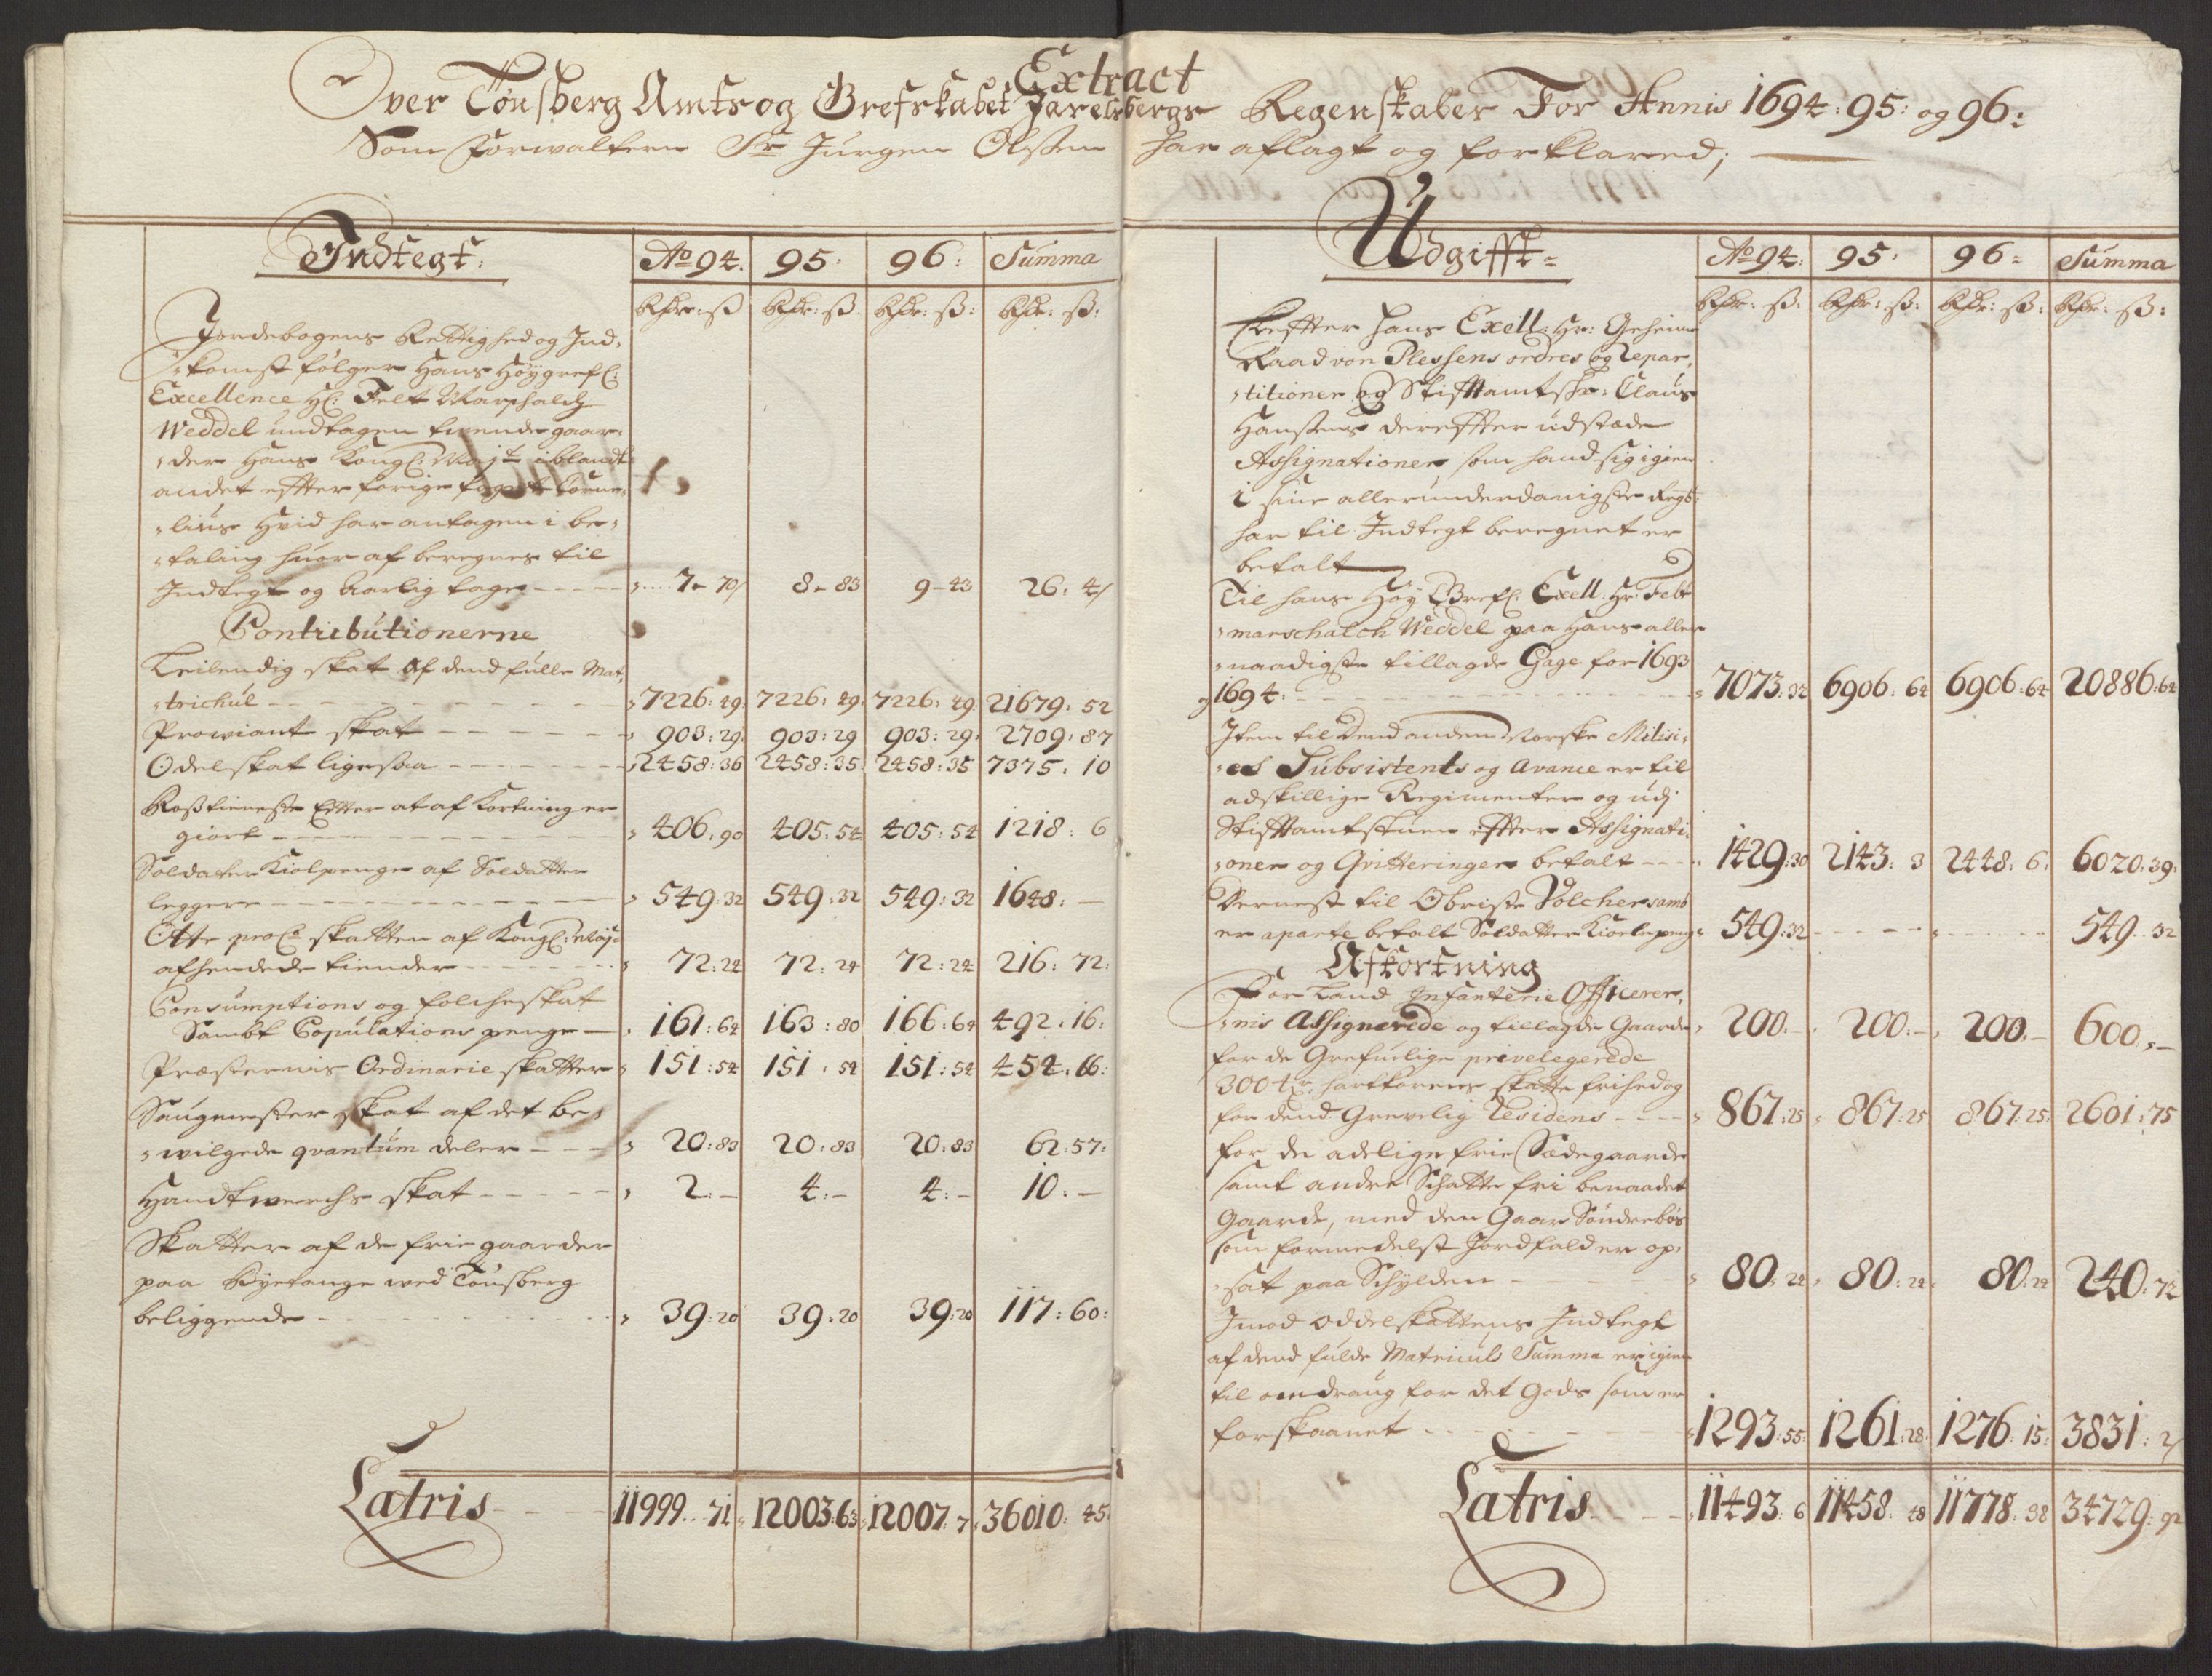 Extract
Over Tønsberg Amts og Grefskabet Jarelsbergs Regenskaber For Annis 1694: 95: og 96:
Som Forwalteren Sr Jurgen Olssen har aflagt og forklared;
Indtegt:
Ao 94. 95. 96: Summa
Rdr: ß Rdr: ß Rdr: ß: Rdr: ß:
Jordebogens Rettighed og Ind„
„komst følger Hans Høygrefl:
Excellence Hr: Felt Marschalch
Weddel undtagen tvende gaar„
„der Hans Kongl: Mayt iblandt
andet effter forige fogetz Corne„
„lius Hvid har antagen i be„
„taling huor af beregnes til
Indtegt og Aarlig tage 7- 70/ 8- 83 9-43 26: 4/
Contributionerne
Leilendig skat Af dend fulle Mat„
„trichul 7226: 49: 7226: 49: 7226: 49: 21679: 52
Prowiant skat 903: 29: 903: 29 903: 29: 2709: 87
Odelskat ligesaa 2458: 36 2458: 35: 2458: 35 7375: 10
Rosstieneste Etter at afkortning er
giort 406: 90 405: 54 405: 54 1218: 6
Soldater Kiolpenge af Soldatter
leggere 549: 32 549: 32 549: 32 1648: —
Otte proCto skatten af Kongl: Mays
afhendede tiender 72: 24 72: 24 72: 24 216: 72:
Consumptions og folcheskat
Sambt Copulations penge 161: 64 163: 80 166: 64 492: 16:
Præsternis Ordinarie skatter 151: 54 151: 54 151: 54 454: 66:
Saugmester skat af det be„
„wilgede qvantum deler 20: 83 20: 83 20: 83 62: 57:
Handtwerchs skat 2: — 4: — 4: — 10: —
Skatter af de frie gaarder
paa Byefange wed Tønsberg
beliggende 39: 20 39: 20 39: 20 117: 60:
Latris 11999: 71 12003: 63 12007: 7 36010: 45
Udgifft=
Ao 94: 95: 96= Summa
Rdr: ß: Rdr: ß: Rdr: ß: Rdr: ß:
Effter Hans Excell: Hr: Geheime
Raad von Plessens ordres og Repar„
„titioner og Stifftamtskr: Claus
Hanssens dereffter udstæde
Assignationer som hand sig igien
i sine allerunderdanigste Regsk:
har til Indtegt beregnet er
betalt
Til hans Høy Grefl: Exell: Hr: Felt
„marschalch Weddel paa Hans aller
„naadigste tillagde Gage for 1693
og 1694: 7073: 32 6906: 64 6906: 64 20886: 64
Item til Dend anden Norske Milisi„
„es Subsistents og Avance er til
adskillige Regimenter og udj
Stifftamtstuen effter Assignati„
„oner og Qvitteringer betalt 1429: 30 2143: 3 2448: 6: 6020: 39:
Dernest til Obriste Volchersamb
er aparte betalt Soldatter Kiolepeng 549: 32 549: 32
Afkortning
For Land Infanterie Officerer„
„nis Assignerede og tillagde Gaarde 200: — 200: — 200: — 600: —
for de Grefuelige privelegerede
300 tr: hartkorens skatte frihed og
for dend Grevelig Residens 867: 25 867: 25 867: 25: 2601: 75
for de adelige frie Sædegaarde
samt andre Schatte fri benaadet
Gaarde, med den Gaar Søndrebøe
som formedelst Jordfald er op„
„sat paa Schylden 80: 24 80: 24 80: 24 240: 72
Imod oddelskattens Indtegt
af dend fulde Matriculs Summa er igien
til omdraug for det Gods som er
forskaanet 1293: 55: 1261: 28: 1276: 15: 3831: 2/
Latris 11493: 6 11458: 48 11778: 38 34729: 92